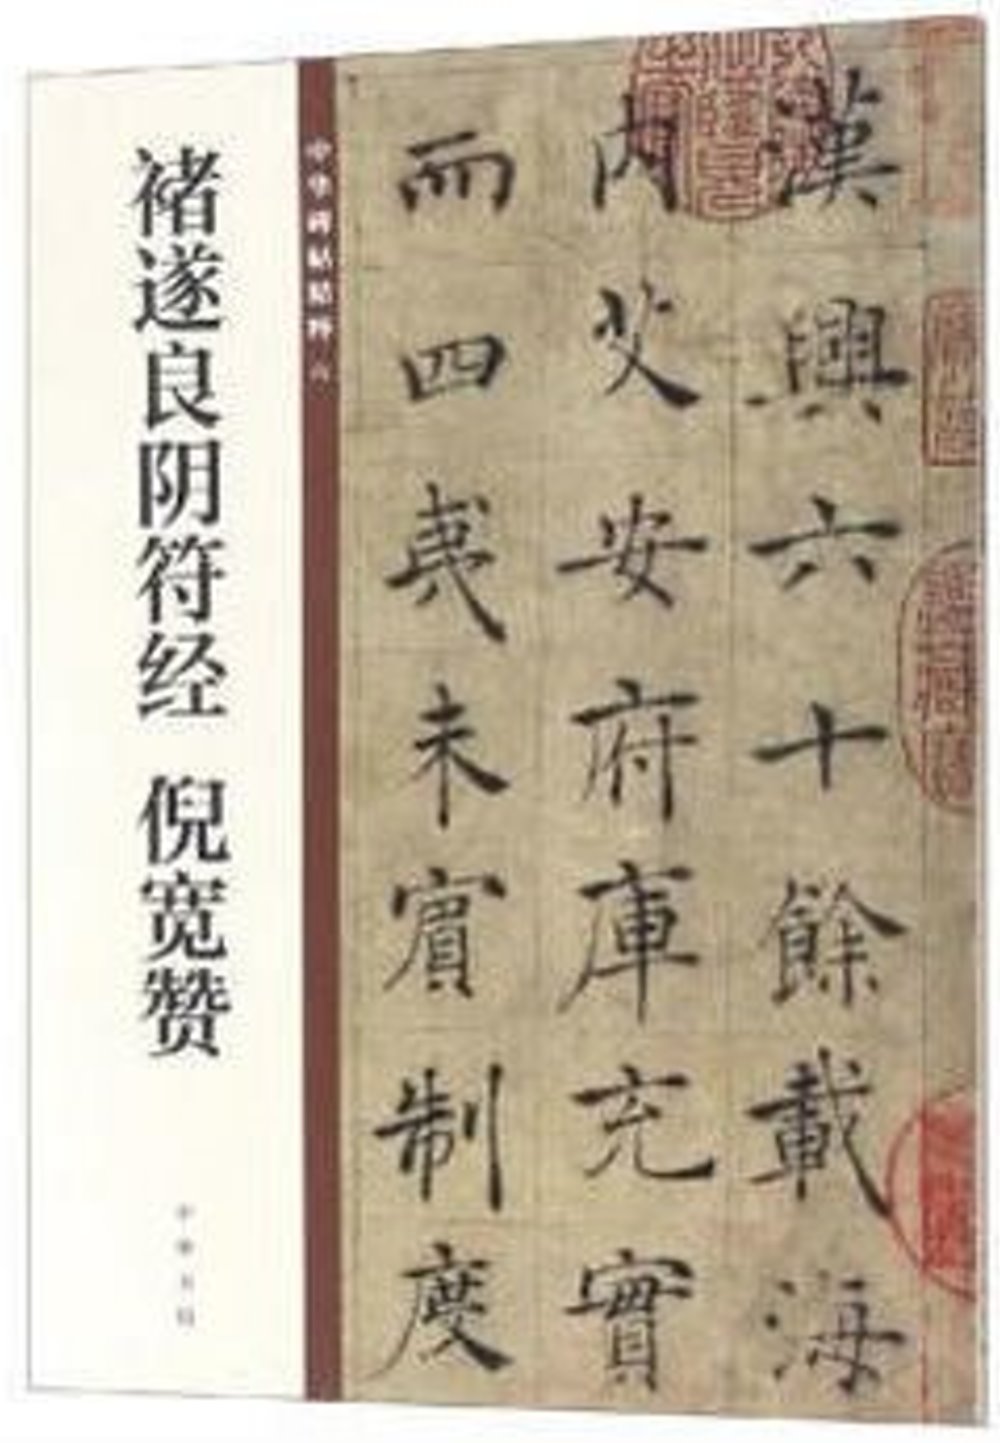 褚遂良阴符经 倪宽赞
中华书局
中华碑帖精粹
漢興六十餘載海
内艾安府庫充實
而四夷未賓制度